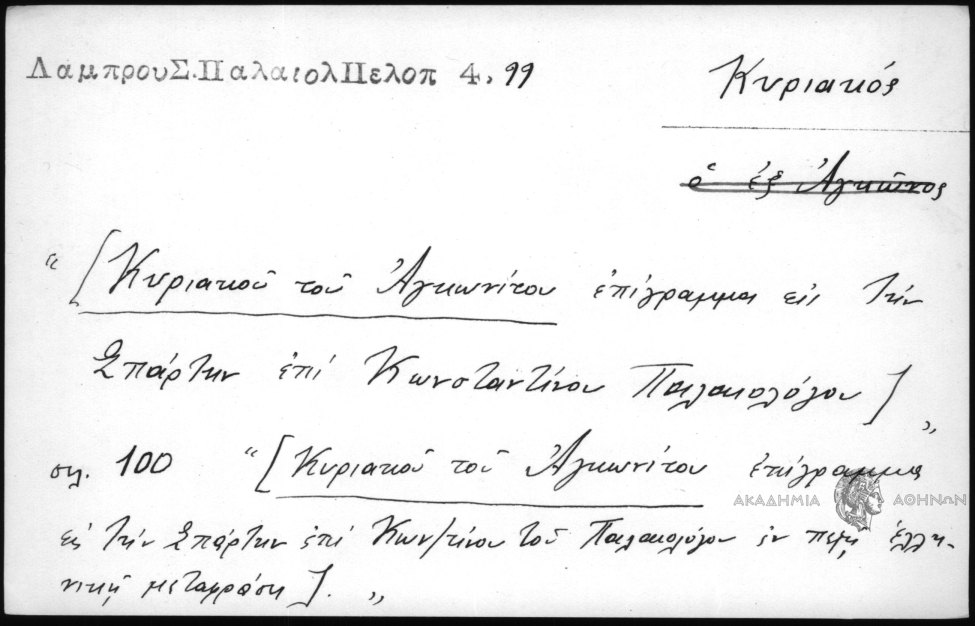 ΛαμπρουΣ.ΠαλαιολΠελοπ 4, 99
Κυριακός
ὁ ἐξ Ἀγκῶνος
“ [Κυριακοῦ τοῦ Ἀγκωνίτου ἐπίγραμμα εἰς τὴν
Σπάρτην ἐπὶ Κωνσταντίνου Παλαιολόγου] „
σελ. 100 “[Κυριακοῦ τοῦ Ἀγκωνίτου ἐπίγραμμα
ΑΚΑΔΗΜΙΑ ΑΘΗΝΩΝ
εἰς τὴν Σπάρτην ἐπὶ Κων/τίνου τοῦ Παλαιολόγου ἐν πεζῇ ἑλλη-
νικῇ μεταφράσει]. „